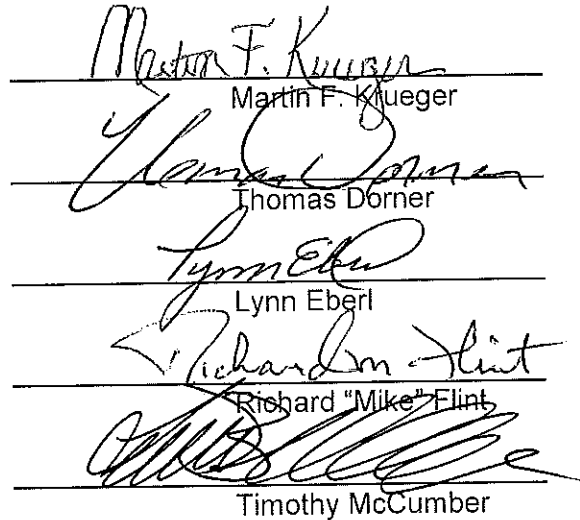 Martin F. Krueger
Martin F. Krueger
Thomas Dorner
Thomas Dorner
Lynn Eberl
Lynn Eberl
Richard M Flint
Richard "Mike" Flint
Timothy McCumber